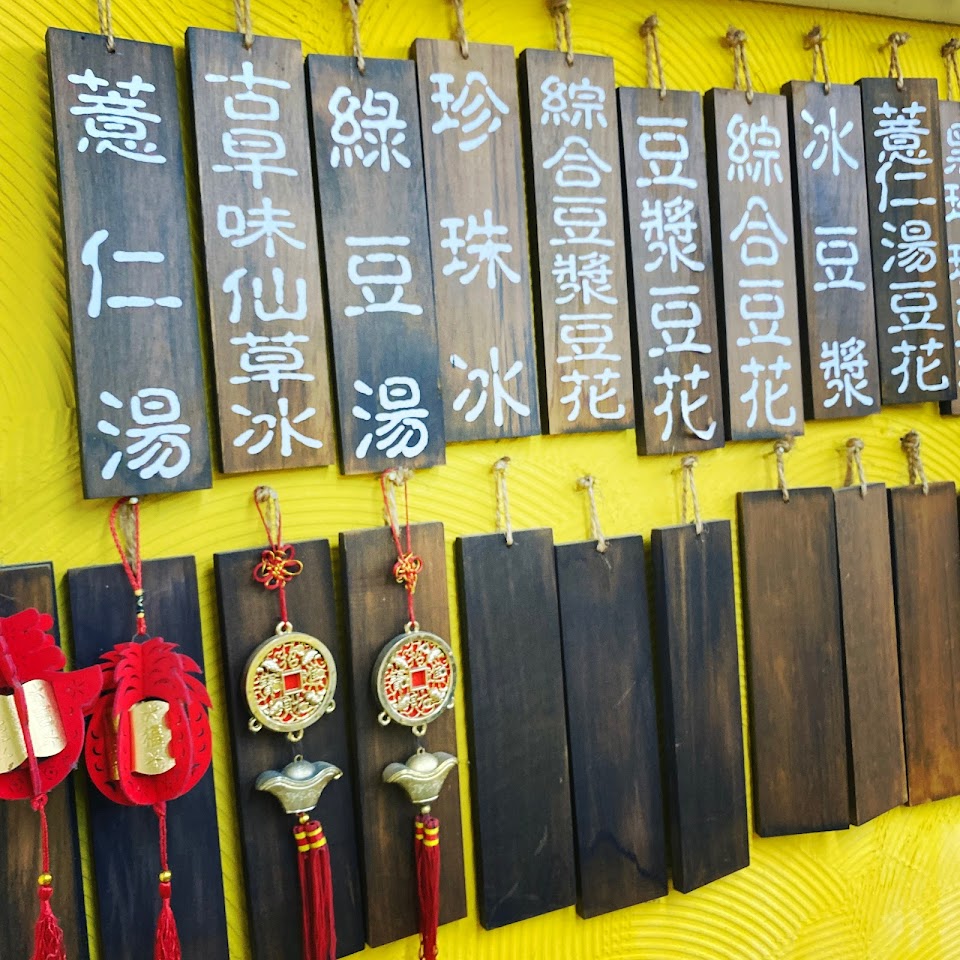 薏仁湯
古早味仙草冰
綠豆湯
珍珠冰
綜合豆漿豆花
豆漿豆花
綜合豆花
冰豆漿
薏仁湯豆花